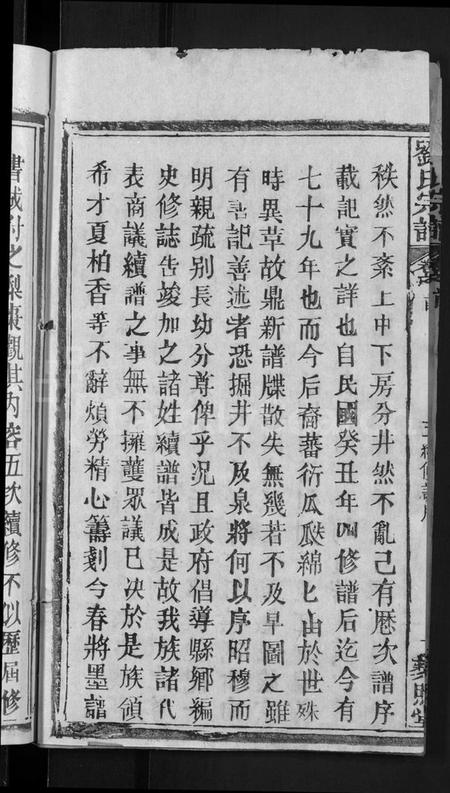 劉氏宗譜
秩然不紊上中下房分井然不亂己有歷次譜序
載記實之詳也自民國癸丑年四修譜后迄今有
七十九年也而今后裔蕃衍瓜瓞綿匕由於世殊
時異草故鼎新譜牒散失無幾若不及早圖之雖
有言記善述者恐掘井不及泉將何以序昭穆而
明親疏别長幼分尊俾乎况且政府倡導縣鄉編
史修誌告竣加之諸姓續譜皆成是故我族諸代
表商議續譜之事無不擁䕶眾議已决於是族領
希才夏柏香等不辭煩勞精心籌劃今春將墨譜
書誠付之梨棗觀其內容五次續修不似歷屆修